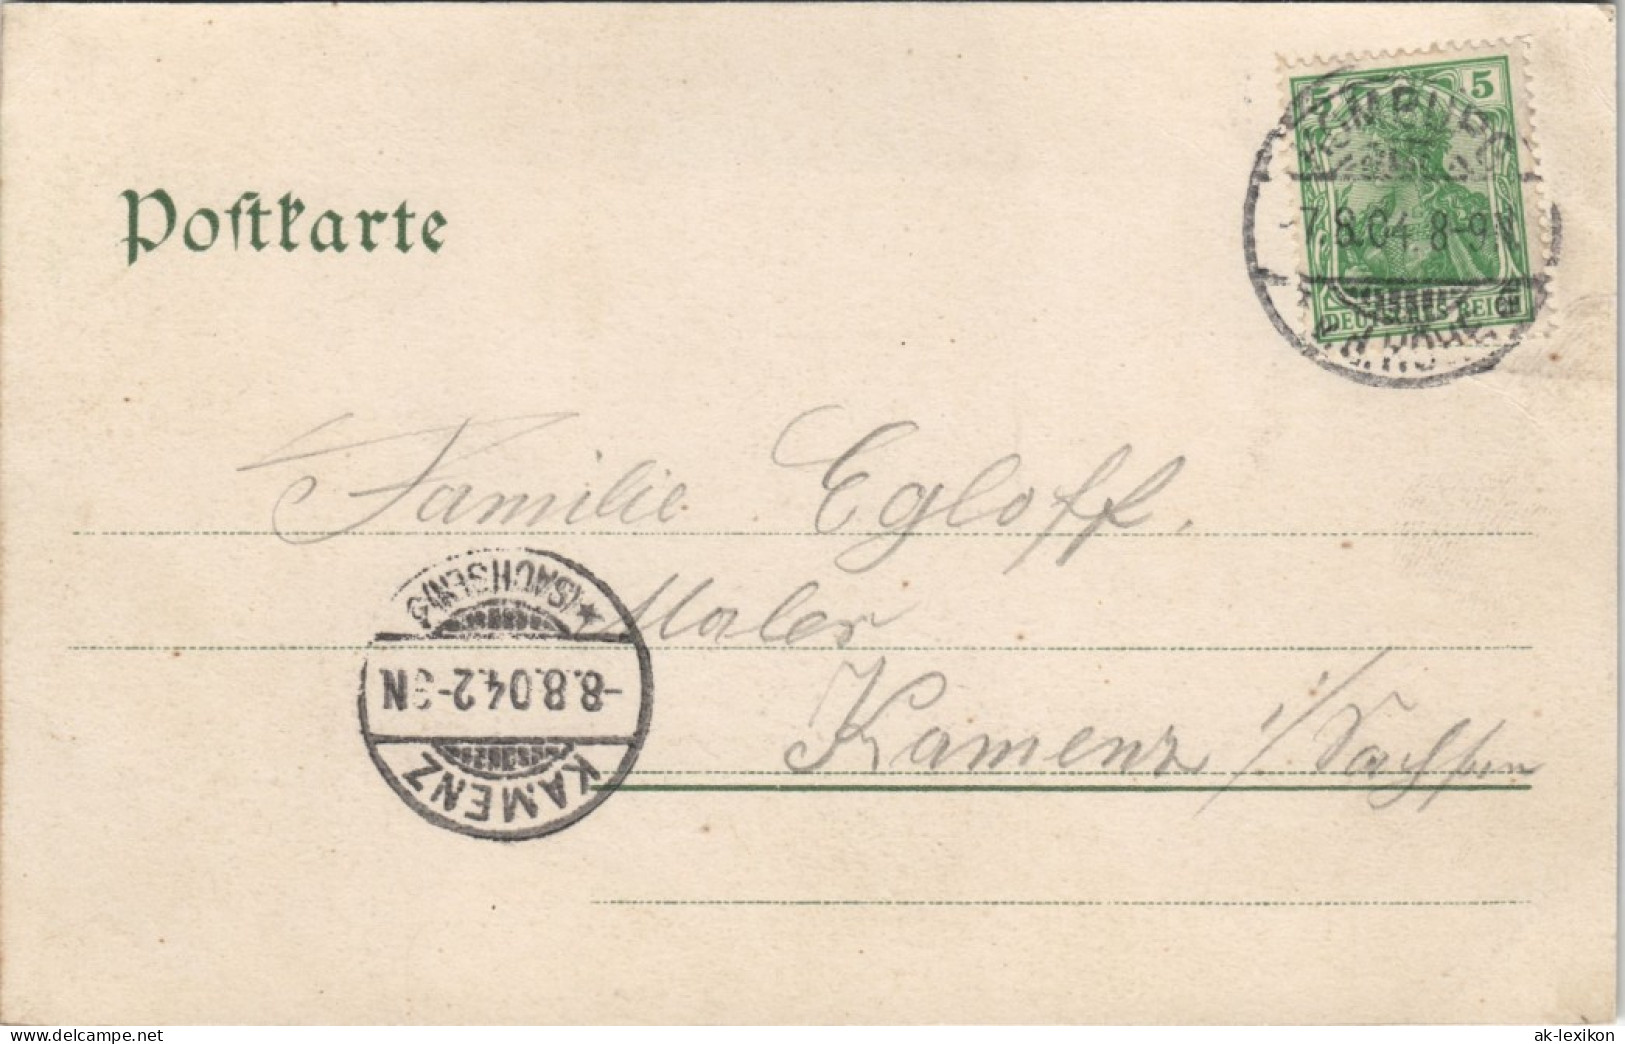 5 5
HOMBURG
-7.8.04. 8-9N
DEUTSCHES REICH
v.d. Höhe
Postkarte
Familie Egloff.
Maler
Kamenz i/Sachsen
(SACHSEN)
-8.8.04.2-3N
KAMENZ
www.delcampe.net
ak-lexikon